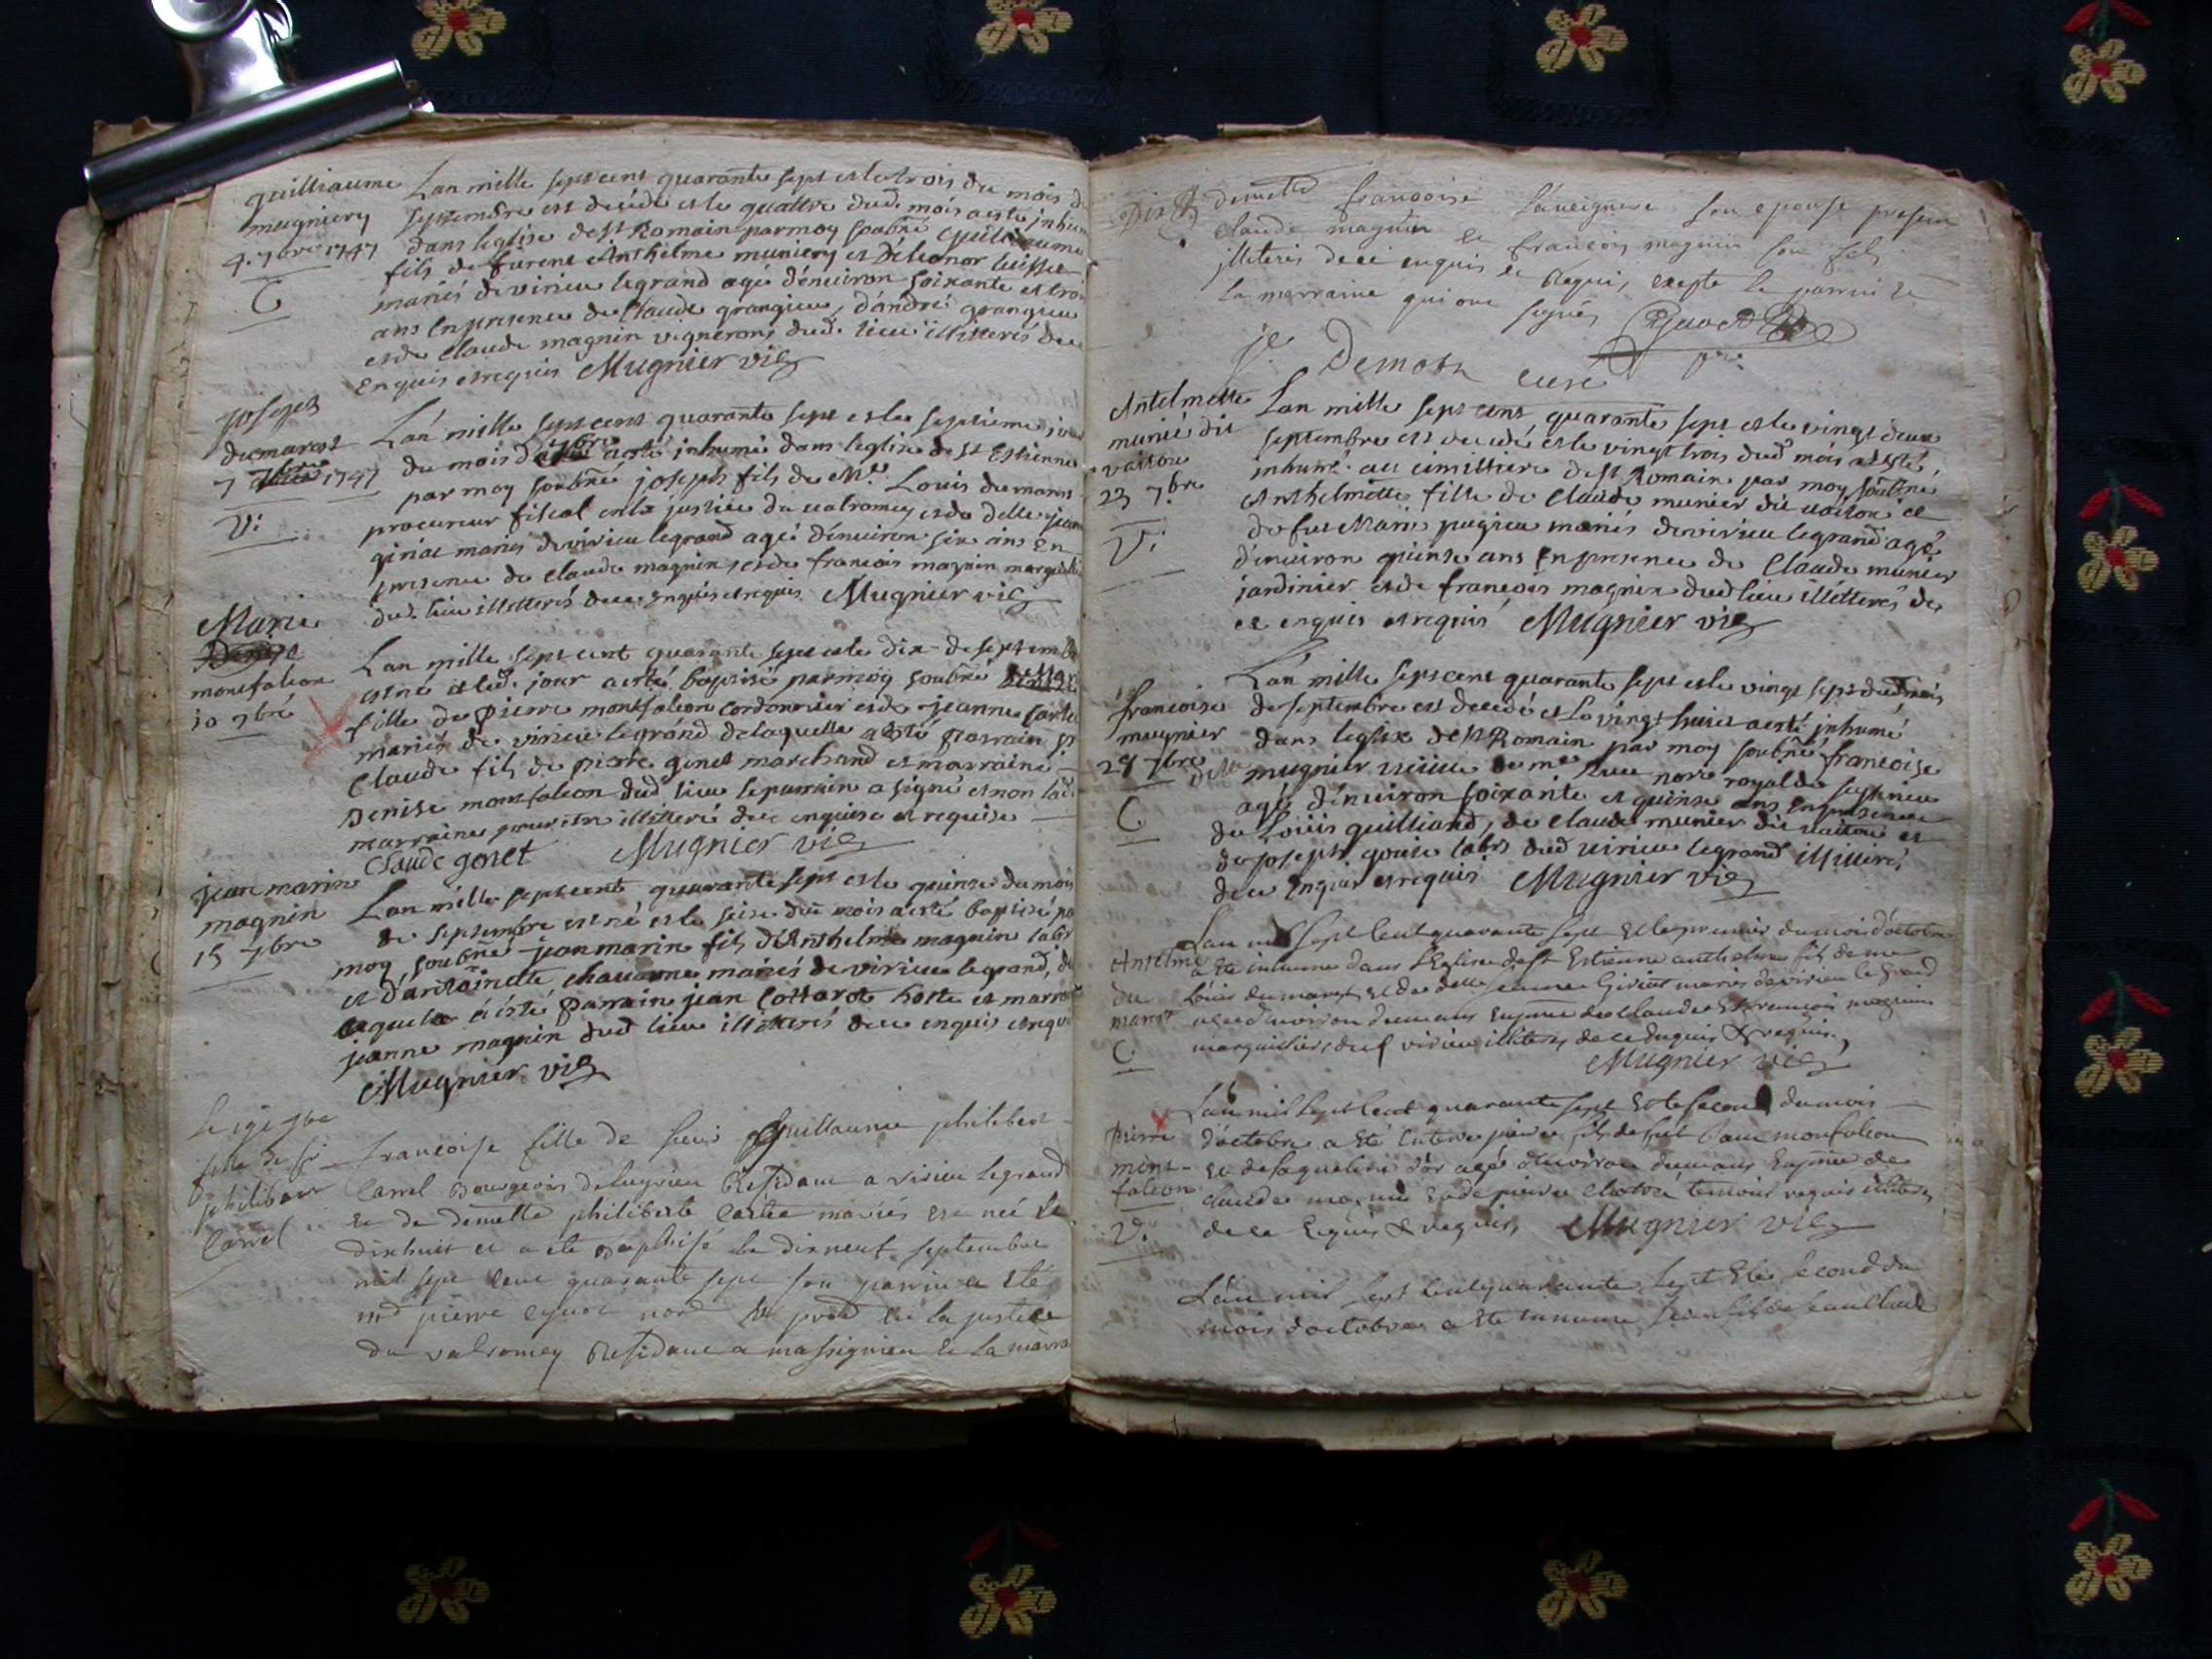 guilliaume
mugniery
4. 7bre 1747
C
Lan mille sept cent quarante sept et le trois du mois d
septembre est decédé et le quattre dud. mois a esté inhum
dans leglise de St Romain par moy soubné guilliaume
fils de furent Anthelme muniery et d'Eleonor
mariés de virieu legrand agé d'enuiron soixante et trois
ans En presence de Claude grangieu, d'andré grangieu
et de Claude magnin vignerons dud. lieu illitterés de ce
Enquis et requis Mugnier vic
joseph
dumarest
7 7bre 1747
V.
L'an mille sept cent quarante sept et le septieme jour
du mois d 7bre a esté inhumé dans leglise de St Estienne
par moy soubné joseph fils de Me Louis dumarest
procureur fiscal en la justice du valromey et de delle jeanne
giriat mariés de virieu legrand agé d'enuiron six ans En
presence de Claude magnin, et de francois magnin marguillier
dud. lieu illitterés de ce enquis et requis Mugnier vic
Marie
Denise
montfalcon
10 7bre
Lan mille sept cent quarante sept et le dix de septembre
est né et led. jour a esté baptisé par moy soubné
fille de pierre montfalcon cordonnier et de jeanne
mariés de virieu legrand de laquelle a esté parrain
Claude fils de pierre genet marchand et marraine
Denise montfalcon dud lieu le parrain a signé et non lad.
marraine pour etre illitteré de ce enquise et requise
Claude genet Mugnier vic
jean marin
magnin
15 7bre
Lan mille sept cent quarante sept et le quinse du mois
de septembre est né et le seise dud mois a esté baptisé par
moy soubné jean marin fils d'Anthelme magnin labr
et d'antoinette chauanne mariés de virieu legrand, du
laquele a esté parrain jean Cottarot hoste et marraine
jeanne magnin dud lieu illitterés de ce enquis et requis
Mugnier vic
Le 19e 7bre
fille de sr
philibert
Carrel
francoise fille de sieur guillaume philibert
Carrel Bourgeois de Residant a virieu legrand
et de demelle philiberte mariés est née le
dixhuit et a été baptisé le dixneuf septembre
mil sept cent quarante sept son parrin a été
pierre en la justice
du valromey Residant a massignieu et la marra
demelle francoise son epouse presens
Claude magnin et francois magnin son fils
illiterés de ce enquis et Requis, exepte le parrin et
la marraine qui ont signés
Demotz curé
Antelmette
munié dit
vaitou
23 7bre
V.
Lan mille sept cent quarante sept et le vingt deux
septembre est decedé et le vingt trois dud mois a esté
inhumé au cimittiere de St Romain par moy soubné
Anthelmette fille de Claude munier dit vaitou et
de fut Marie pugieu mariés de virieu legrand agé
d'enuiron quinse ans En presence de Claude munier
jardinier et de francois magnin dud lieu illitterés de
ce enquis et requis Mugnier vic
francoise
mugnier
29 7bre
C.
L'an mille sept cent quarante sept et le vingt sept dud mois
de septembre est decedé et le vingt huict a esté inhumé
dans leglise de St Romain par moy soubné francoise
mugnier veüue de me nore royal de seyssieu
agé d'enuiron soixante et quinse ans En presence
de Loüis guilliand, de Claude munier dit vaitou et
de joseph gouise labrs dud virieu legrand illitterés
de ce Enquis et requis Mugnier vic
Anselme
du
marest
C.
Lan mil sept cent quarante sept et le premier du mois d'octobre
a eté inhumé dans l'Eglise de St Estienne anthelme fils de me
Loüis dumarest et de delle jeanne Giriat mariés de virieu le Grand
agé d'environ deux ans en pnce de Claude et francois magnin
marguilliers dud virieu illiterés de ce Enquis & requis.
Mugnier vic
pierre
mont-
falcon
V.
Lan mil sept cent quarante sept et le second du mois
d'octobre a eté enterré pierre fils de fut montfalcon
et de jaqueline d'or agé d'environ deux ans En pnce de
claude magnin et de pierre temoins requis illiterés
de ce Enquis & requis, Mugnier vic
L'an mil sept cent quarante sept et le second du
mois d'octobre a eté inhumé